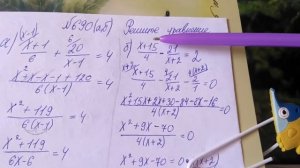 №690(аб) Решите уравнение
а) x+1/6 + 20/x-1 = 4
x²+x-x-1+120/6(x-1) = 4
x²+119/6(x-1) = 4
x²+119/6x-6 = 4
б) x+15/4 - 21/x+2 = 2
x+15/4 - 21/x+2 - 2/1 = 0
x²+15x+2x+30-84-8x-16/4(x+2) = 0
x²+9x-40/4(x+2) = 0
x²+9x-40=0